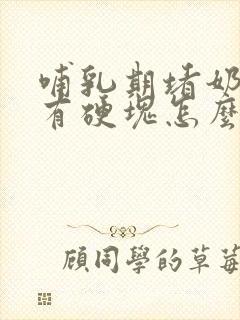 哺乳期堵奶
有硬塊怎麼
顧同學的草莓